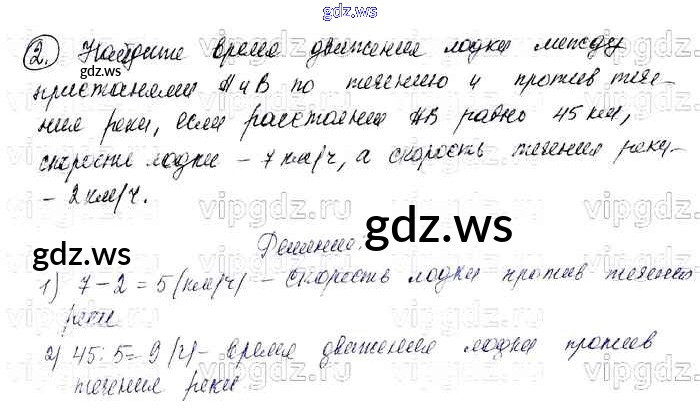 gdz.ws
2. Найдите время движения лодки между
gdz.ws
пристанями А и В по течению и против тече-
ния реки, если расстояния АВ равно 45 км,
скорость лодки - 7 км/ч, а скорость течения реки-
- 2 км/ч.
vipgdz.ru vipgdz.ru vipgdz.ru
gdz.ws
Решение.
gdz.ws
1) 7 - 2 = 5 (км/ч) - скорость лодки против течения
реки
2) 45 : 5 = 9 (ч) - время движения лодки против
течения реки
gdz.ws